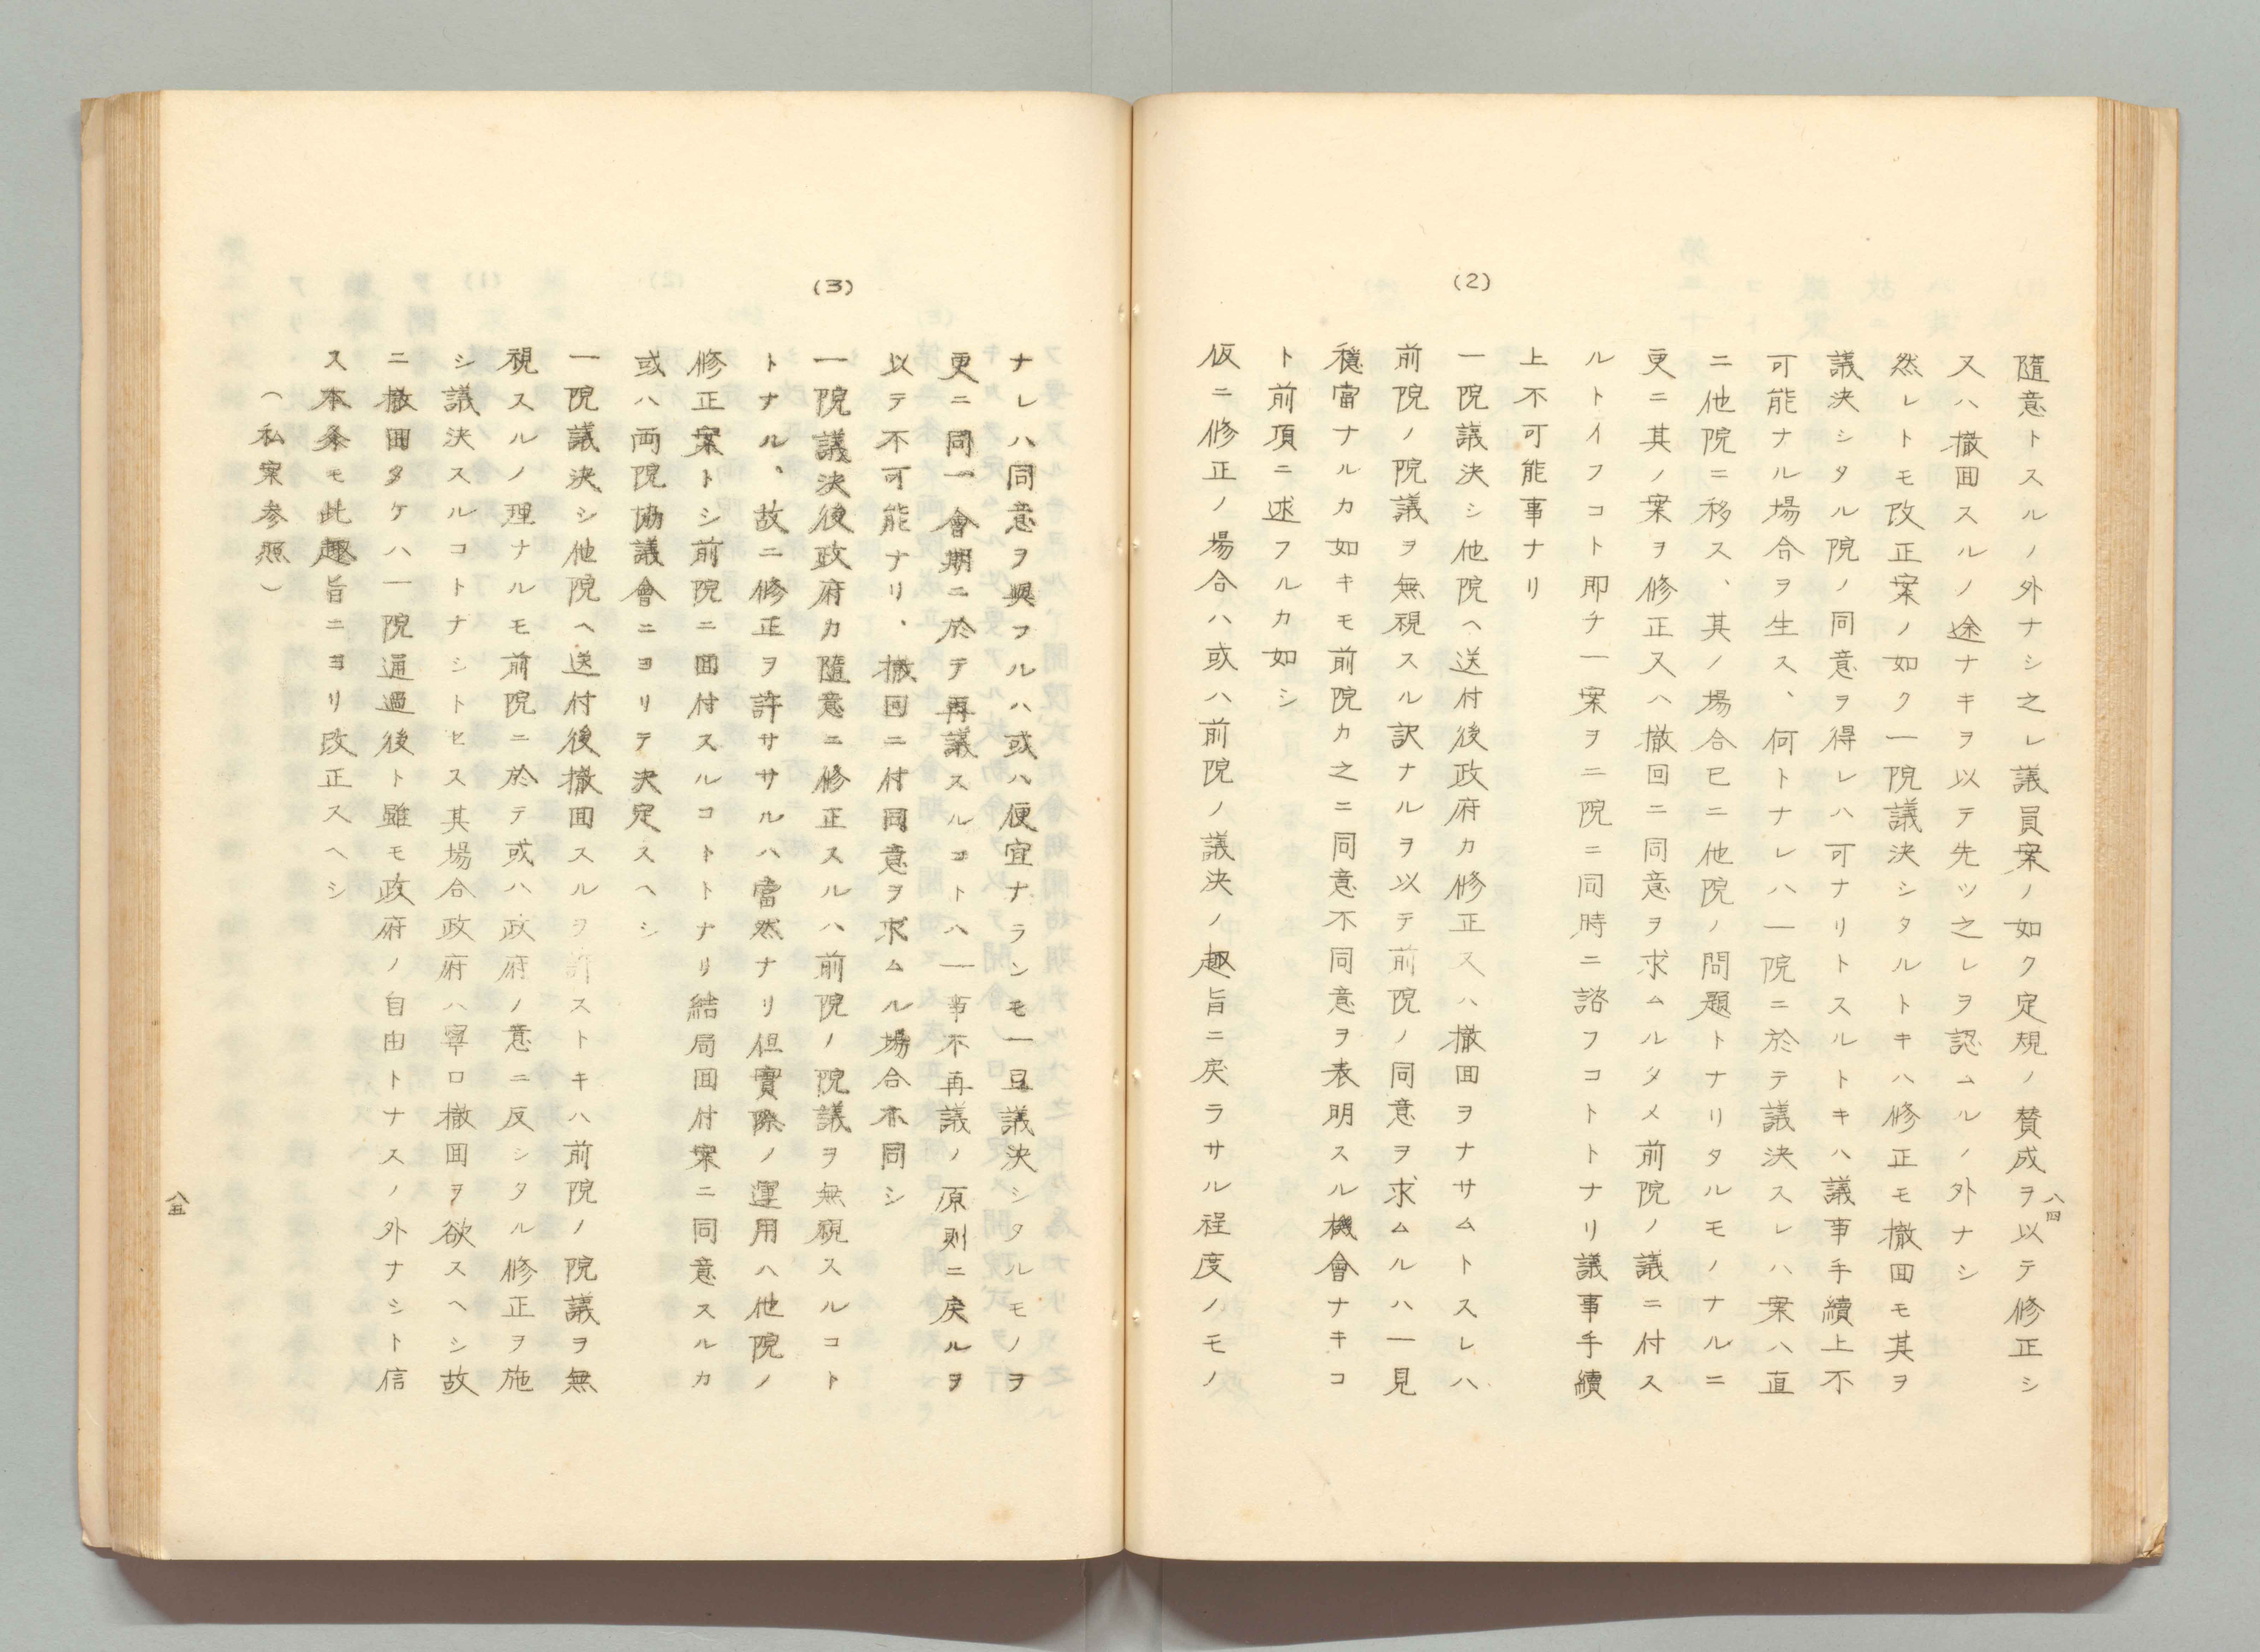 隨意トスルノ外ナシ之レ議員案ノ如ク定規ノ賛成ヲ以テ修正シ
又ハ撤囬スルノ途ナキヲ以テ先ツ之レヲ認ムルノ外ナシ
然レトモ改正案ノ如ク一院議決シタルトキハ修正モ撤囬モ其ヲ
議決シタル院ノ同意ヲ得レハ可ナリトスルトキハ議事手續上不
可能ナル場合ヲ生ス、何トナレハ一院ニ於テ議決スレハ案ハ直
ニ他院ニ移ス、其ノ場合已ニ他院ノ問題トナリタルモノナルニ
更ニ其ノ案ヲ修正又ハ撤回ニ同意ヲ求ムルタメ前院ノ議ニ付ス
ルトイフコト即チ一案ヲ二院ニ同時ニ諮フコトトナリ議事手續
上不可能事ナリ
(2)
一院議決シ他院ヘ送付後政府カ修正又ハ撤囬ヲナサムトスレハ
前院ノ院議ヲ無視スル訳ナルヲ以テ前院ノ同意ヲ求ムルハ一見
穏當ナルカ如キモ前院カ之ニ同意不同意ヲ表明スル機會ナキコ
ト前項ニ述フルカ如シ
仮ニ修正ノ場合ハ或ハ前院ノ議決ノ趣旨ニ戻ラサル程度ノモノ
八四
ナレハ同意ヲ與フルハ或ハ便宜ナランモ一旦議決シタルモノヲ
更ニ同一會期ニ於テ再議スルコトハ一事不再議ノ原則ニ戻ルヲ
以テ不可能ナリ、撤回ニ付同意ヲ求ムル場合亦同シ
(3)
一院議決後政府カ隨意ニ修正スルハ前院ノ院議ヲ無視スルコト
トナル、故ニ修正ヲ許ササルハ當然ナリ但實際ノ運用ハ他院ノ
修正案トシ前院ニ囬付スルコトトナリ結局囬付案ニ同意スルカ
或ハ両院協議會ニヨリテ決定スヘシ
一院議決シ他院ヘ送付後撤囬スルヲ許ストキハ前院ノ院議ヲ無
視スルノ理ナルモ前院ニ於テ或ハ政府ノ意ニ反シタル修正ヲ施
シ議決スルコトナシトセス其場合政府ハ寧ロ撤囬ヲ欲スヘシ故
ニ撤囬タケハ一院通過後ト雖モ政府ノ自由トナスノ外ナシト信
ス本条モ此趣旨ニヨリ改正スヘシ
（私案参照）
八五